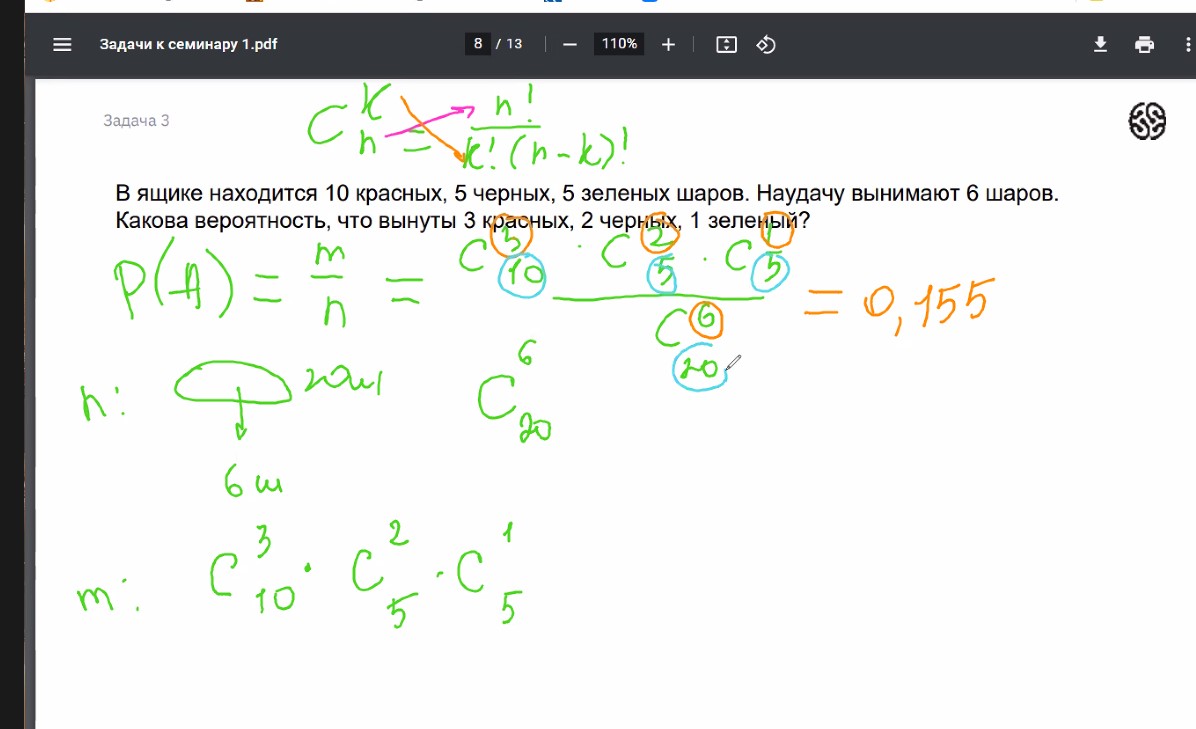 Задачи к семинару 1.pdf 8 / 13 110%
Задача 3
C_n^k = n! / k!(n-k)!
В ящике находится 10 красных, 5 черных, 5 зеленых шаров. Наудачу вынимают 6 шаров.
Какова вероятность, что вынуты 3 красных, 2 черных, 1 зеленый?
P(A) = m/n = C_10^3 · C_5^2 · C_5^1 / C_20^6 = 0,155
n: 20ш C_20^6
6 ш
m: C_10^3 · C_5^2 · C_5^1